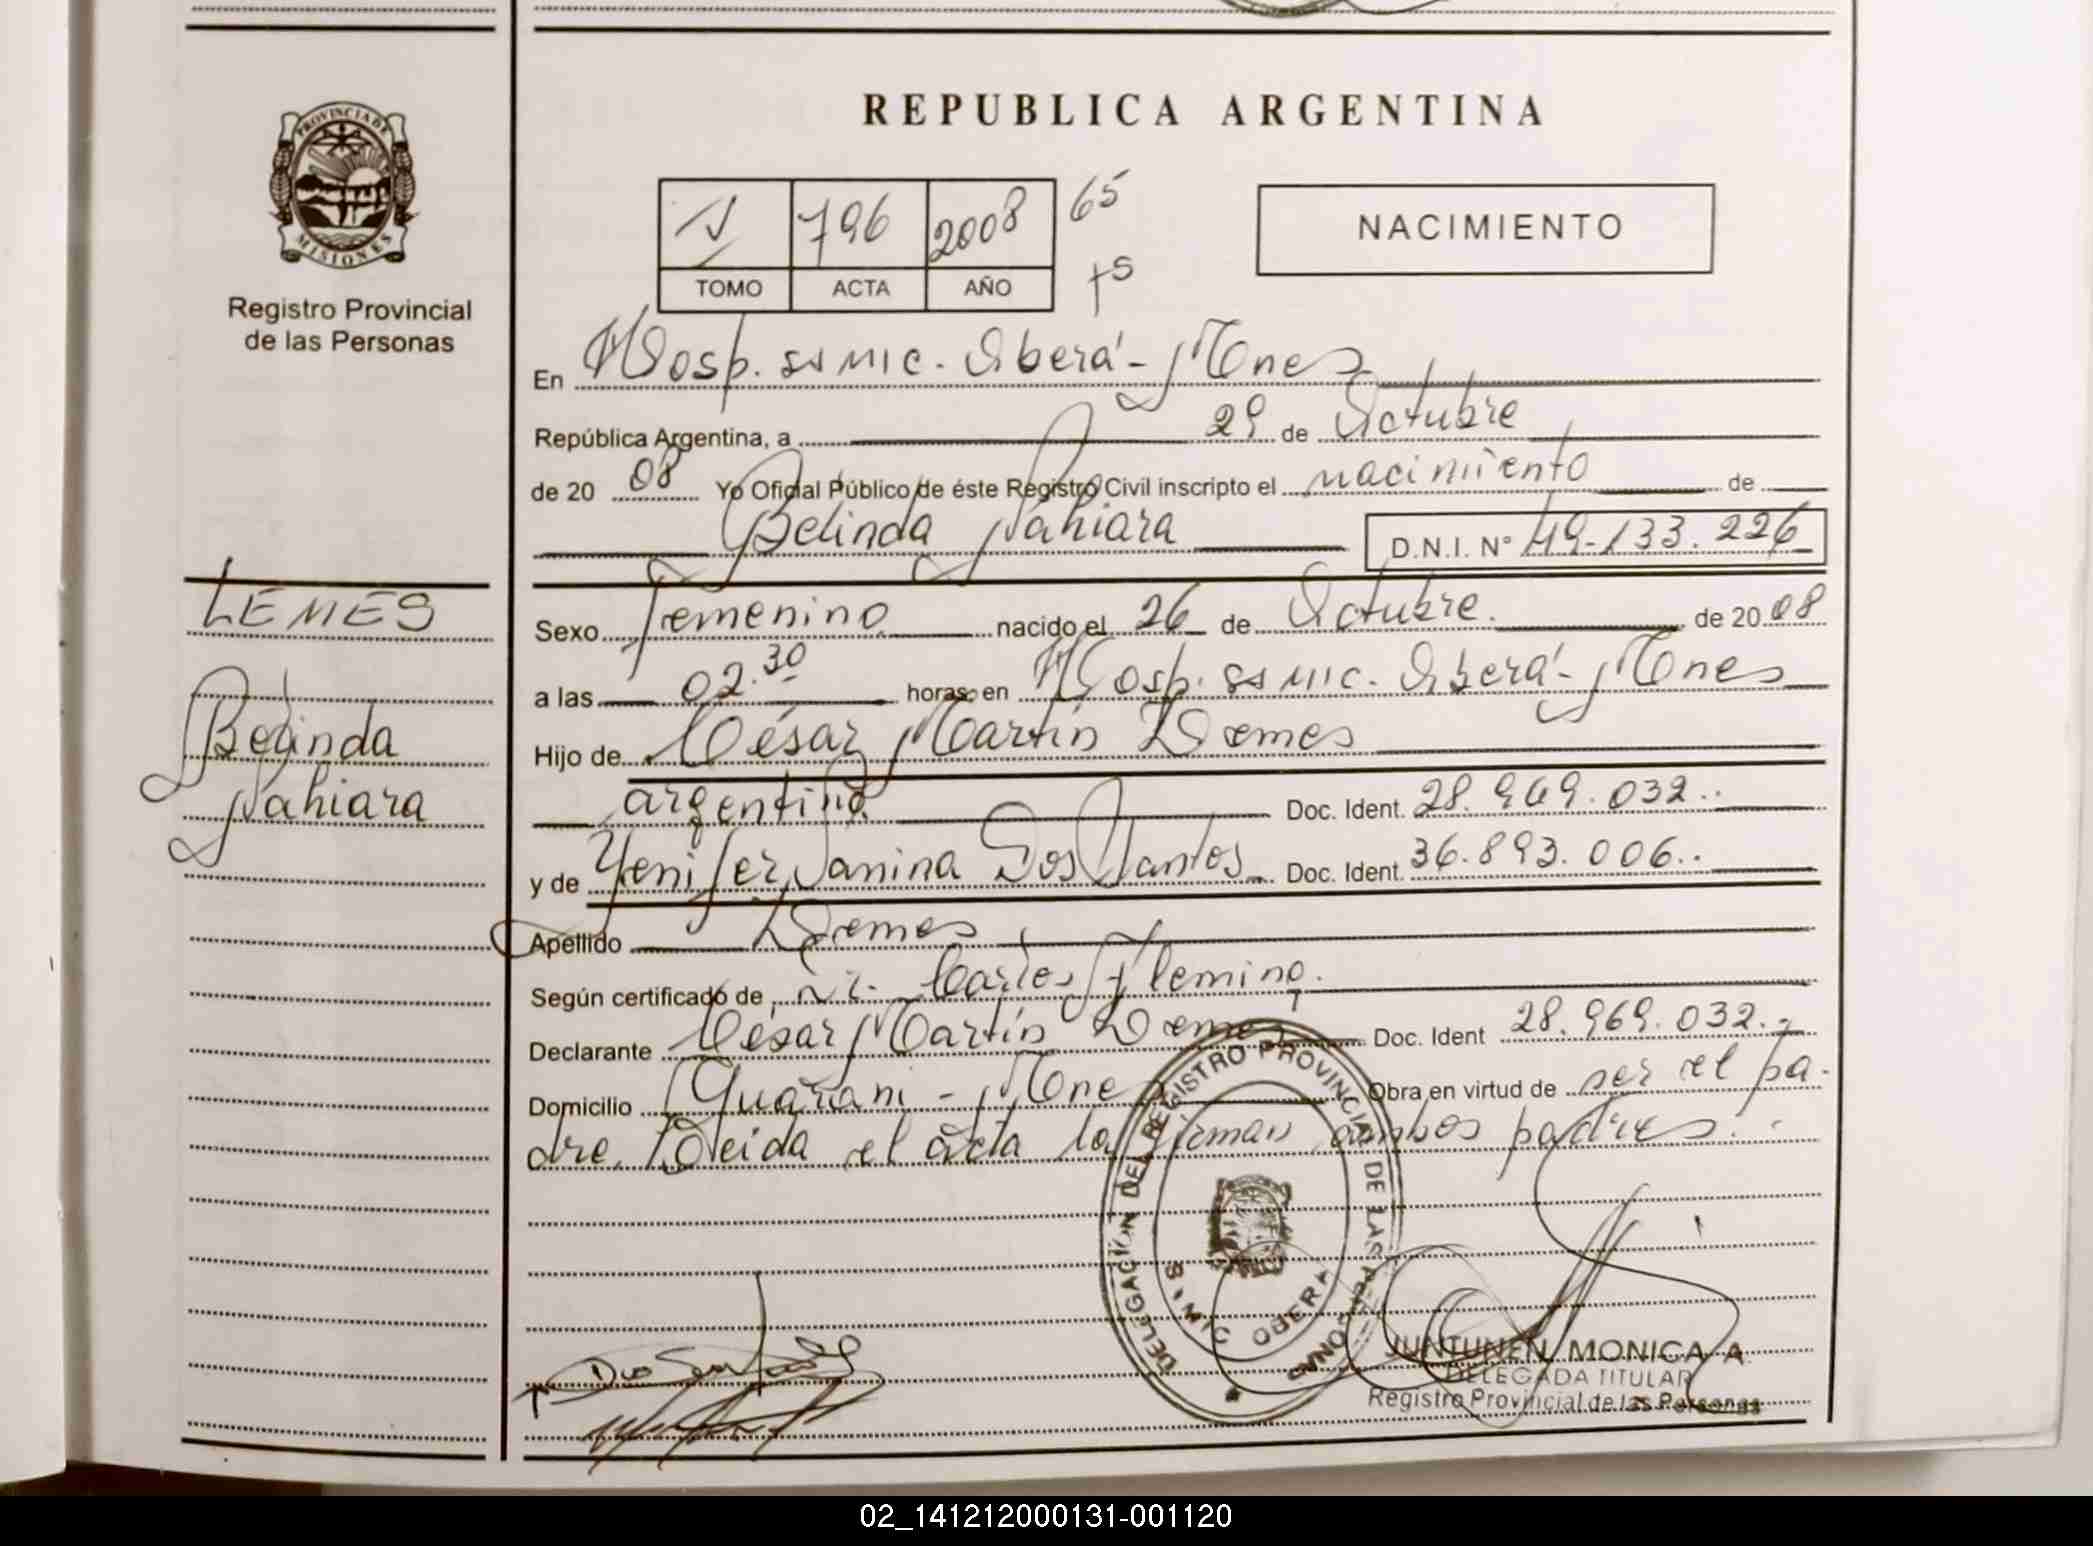 REPUBLICA ARGENTINA
PROVINCIA DE
MISIONES
Registro Provincial
de las Personas
796 2008 65
TOMO ACTA AÑO
NACIMIENTO
En Hosp. ss mic. Oberá - Mnes
República Argentina, a 29 de Octubre
de 20 08 Yo Oficial Público de éste Registro Civil inscripto el nacimiento de
Belinda Nahiara D.N.I. N° 49-133.226
LEMES
Belinda
Nahiara
Sexo Femenino nacido el 26 de Octubre. de 20 08
a las 02.30 horas en Hosp. ss mic. Oberá - Mnes
Hijo de César Martín Lemes
argentino Doc. Ident. 28.969.032..
y de Yenifer Yanina Dos Santos Doc. Ident. 36.893.006..
Apellido Lemes
Según certificado de Dr. Carlos Fleming.
Declarante César Martín Lemes Doc. Ident 28.969.032.-
Domicilio Guaraní - Mnes Obra en virtud de ser el pa-
dre. Leída el acta la firman ambos padres..
DELEGACIÓN DEL REGISTRO PROVINCIAL DE LAS PERSONAS
OBERA
Dos Santos
JUNTUNEN MONICA A
DELEGADA TITULAR
Registro Provincial de las Personas
02_141212000131-001120